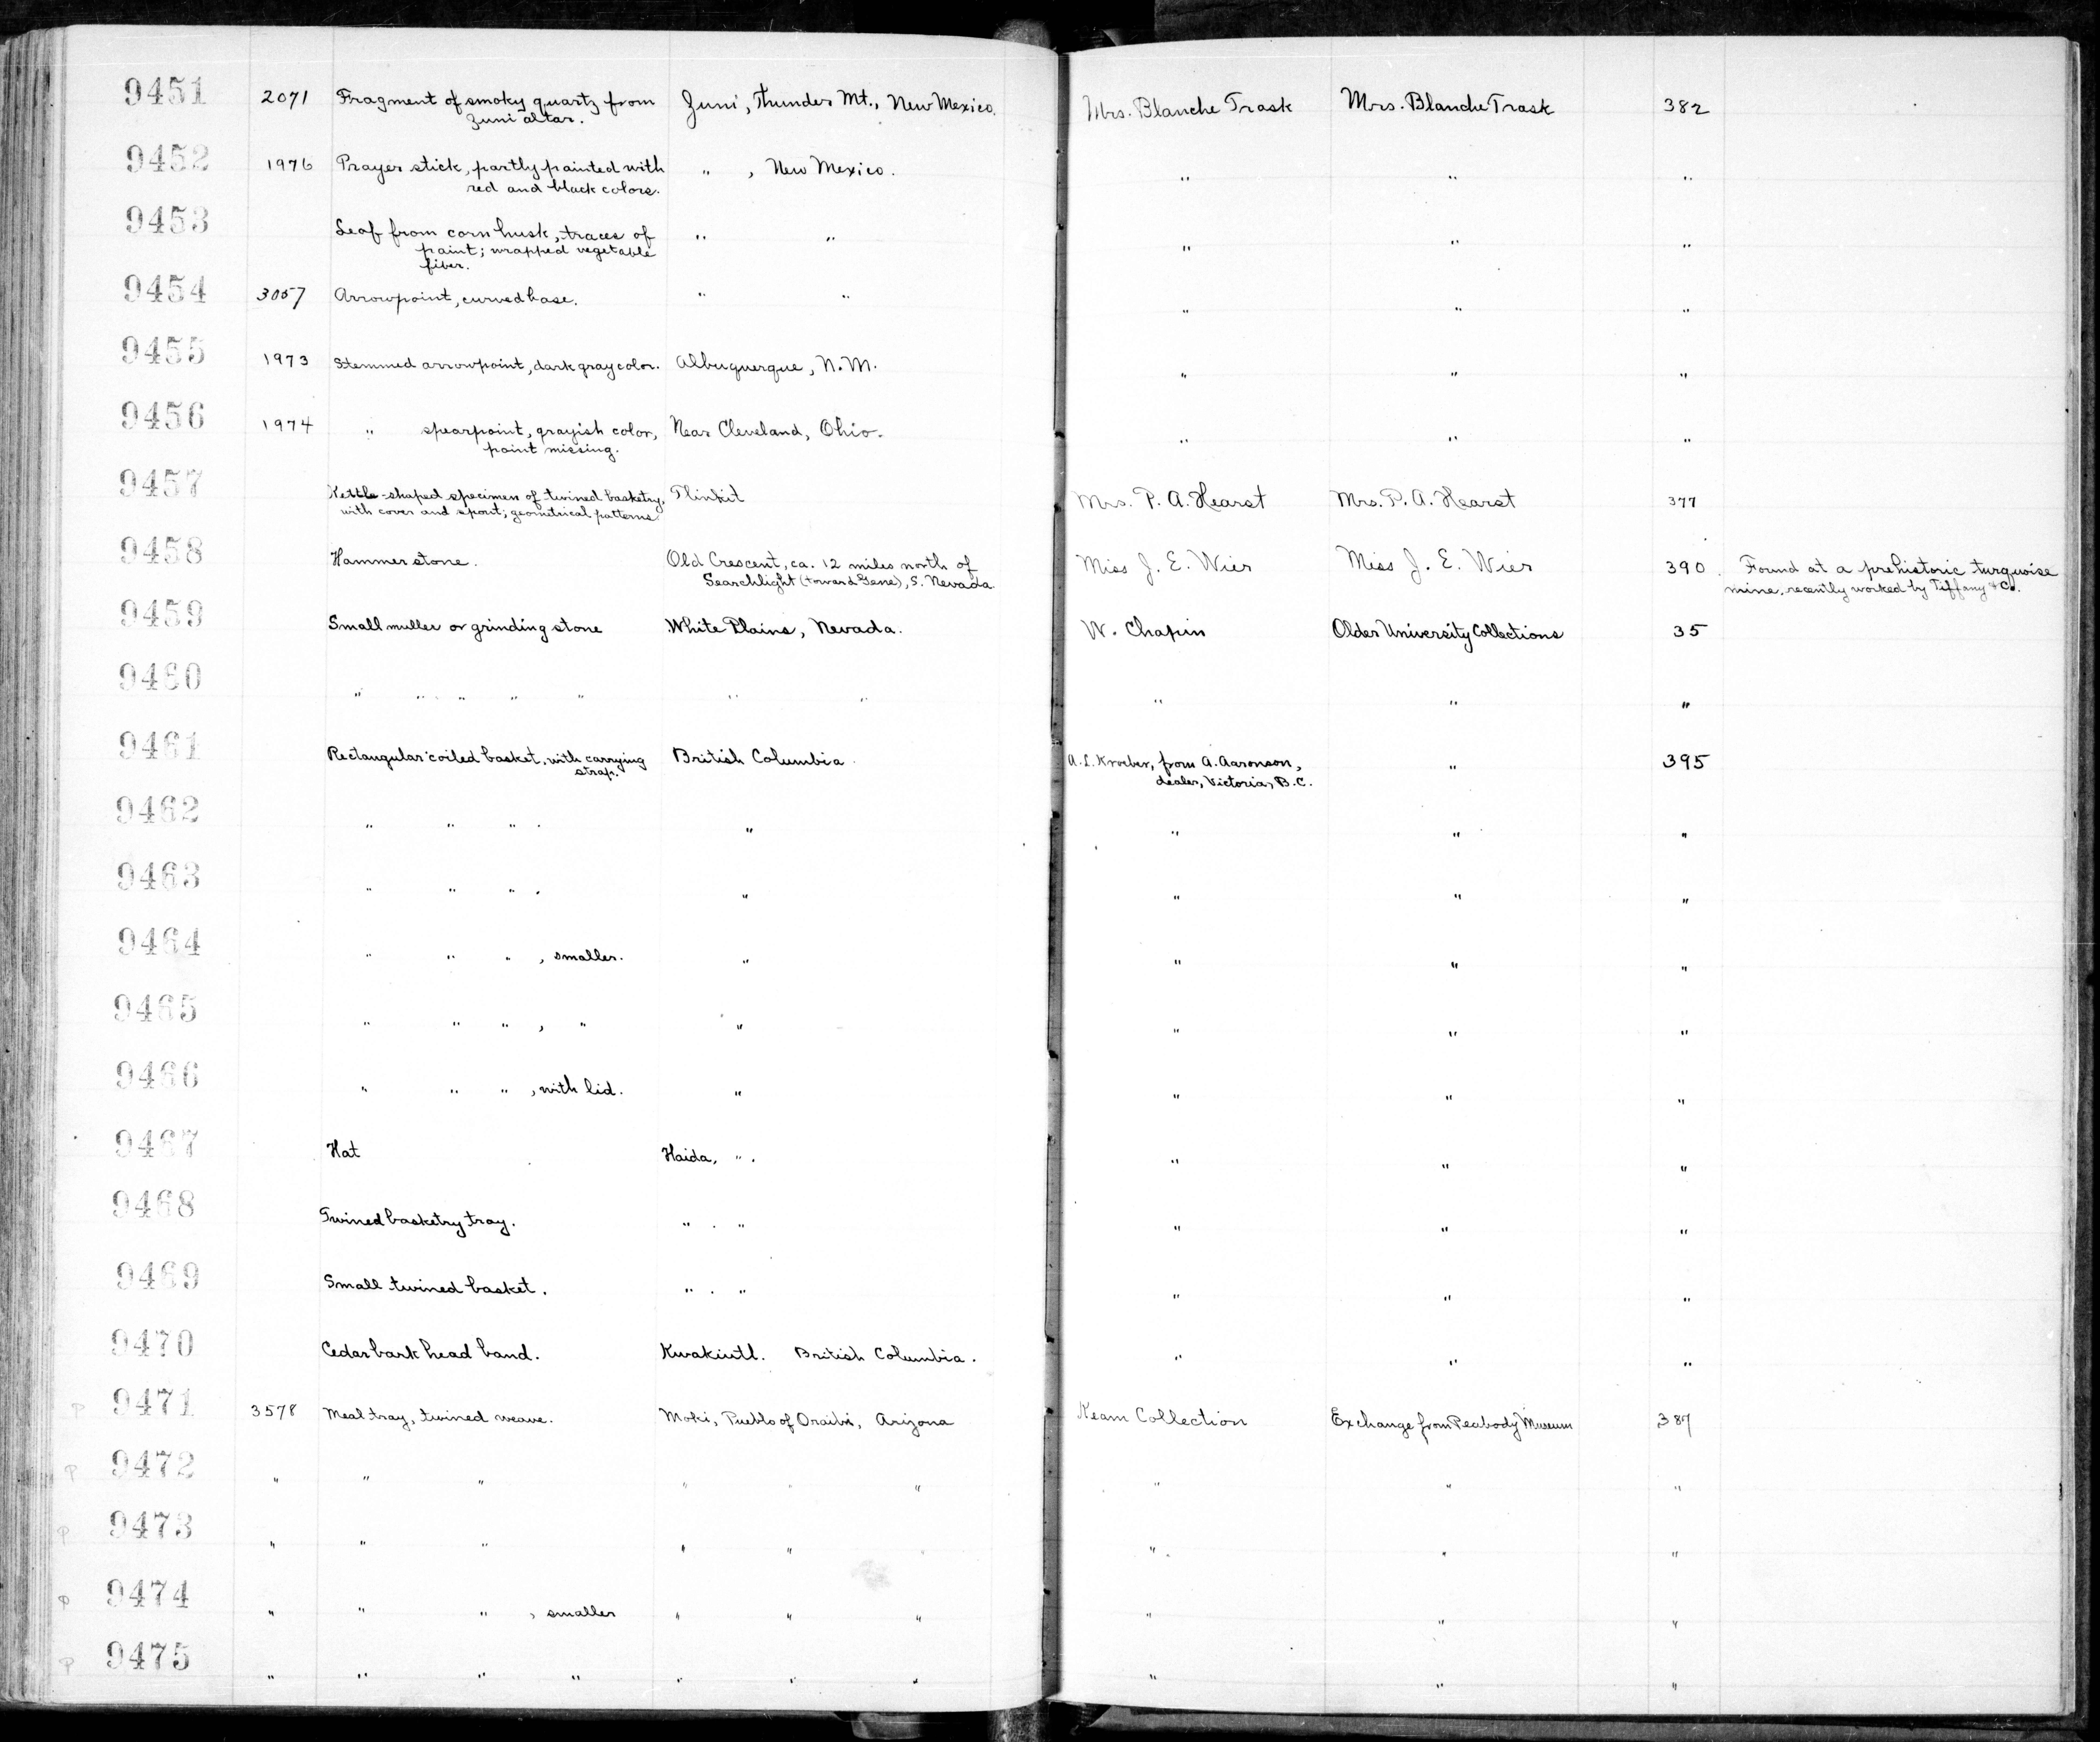 9451 2071 Fragment of smoky quartz from Zuni, Thunder Mt., New Mexico. Mrs. Blanche Trask Mrs. Blanche Trask 382
Zuni altar.
9452 1976 Prayer stick, partly painted with " , New Mexico. " " "
red and black colors.
9453 Leaf from corn husk, traces of " " " " "
paint; wrapped vegetable
fiber.
9454 3057 Arrowpoint, curved base. " " " " "
9455 1973 Stemmed arrowpoint, dark gray color. Albuquerque, N.M. " " "
9456 1974 " spearpoint, grayish color, Near Cleveland, Ohio. " " "
point missing.
9457 Kettle-shaped specimen of twined basketry, Tlinkit Mrs. P. A. Hearst Mrs. P. A. Hearst 377
with cover and spout; geometrical patterns.
9458 Hammerstone. Old Crescent, ca. 12 miles north of Miss J. E. Wier Miss J. E. Wier 390. Found at a prehistoric turquoise
Searchlight (toward Gene), S. Nevada. mine, recently worked by Tiffany & Co.
9459 Small muller or grinding stone White Plains, Nevada. W. Chapin Older University Collections 35
9460 " " " " " " " " " "
9461 Rectangular coiled basket, with carrying British Columbia. A.L. Kroeber, from A. Aaronson, " 395
strap. dealer, Victoria, B.C.
9462 " " " . " " " "
9463 " " " . " " " "
9464 " " " , smaller. " " " "
9465 " " " , " " " " "
9466 " " " , with lid. " " " "
9467 Hat Haida, " . " " "
9468 Twined basketry tray. " . " " " "
9469 Small twined basket. " . " " " "
9470 Cedar bark head band. Kwakiutl. British Columbia. " " "
P 9471 3578 Meal tray, twined weave. Moki, Pueblo of Oraibi, Arizona Keam Collection Exchange from Peabody Museum 387
P 9472 " " " " " " " " "
P 9473 " " " " " " " " "
P 9474 " " " , smaller " " " " " "
P 9475 " " " " " " " " " "